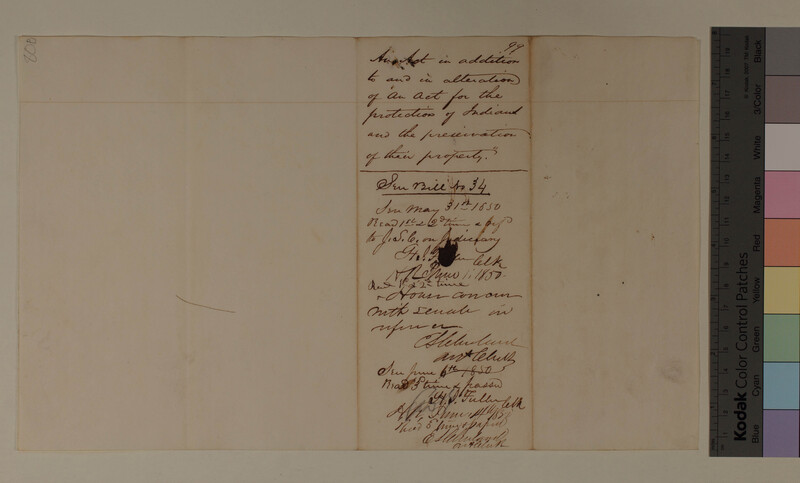 99
An Act in addition
to and in alteration
of "An Act for the
protection of Indians
and the preservation
of their property."
Sen Bill No 34
Sen May 31st 1850
Read 1st & 2d time & 
to J. S. C. on Judiciary
Clk
H R June 1. 1850
Read 1st & 2d time
& House concur
with Senate in
reference
Asst Clerk
Sen June 6th 1850
Read 3 time & passed
H. J. Fuller Clk
H. R. June
Read 3 times & passed
Asst Clerk
Kodak Color Control Patches
Blue
Cyan
Green
Yellow
Red
Magenta
White
3/Color
Black